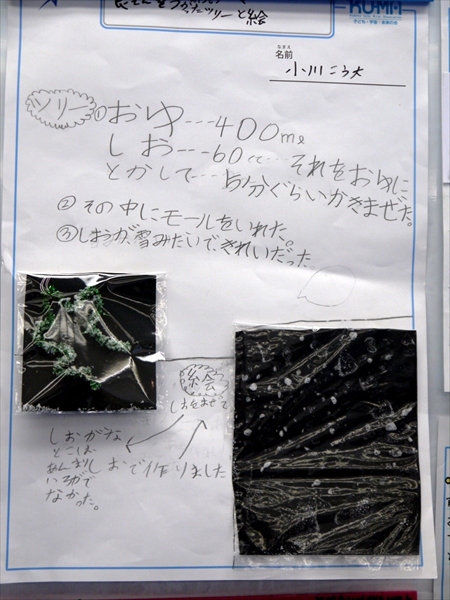 ツリーと絵
KUMM
名前
なまえ
小川こう大
ツリー
①おゆ---400ml
しお---60cc---それをおゆに
とかして---5分ぐらいかきまぜた。
②その中にモールをいれた。
③しおが、雪みたいで、きれいだった
絵
しおをまぜて
しおがな
とこは
あんまり
いろがで
なかった。
しおで作りました